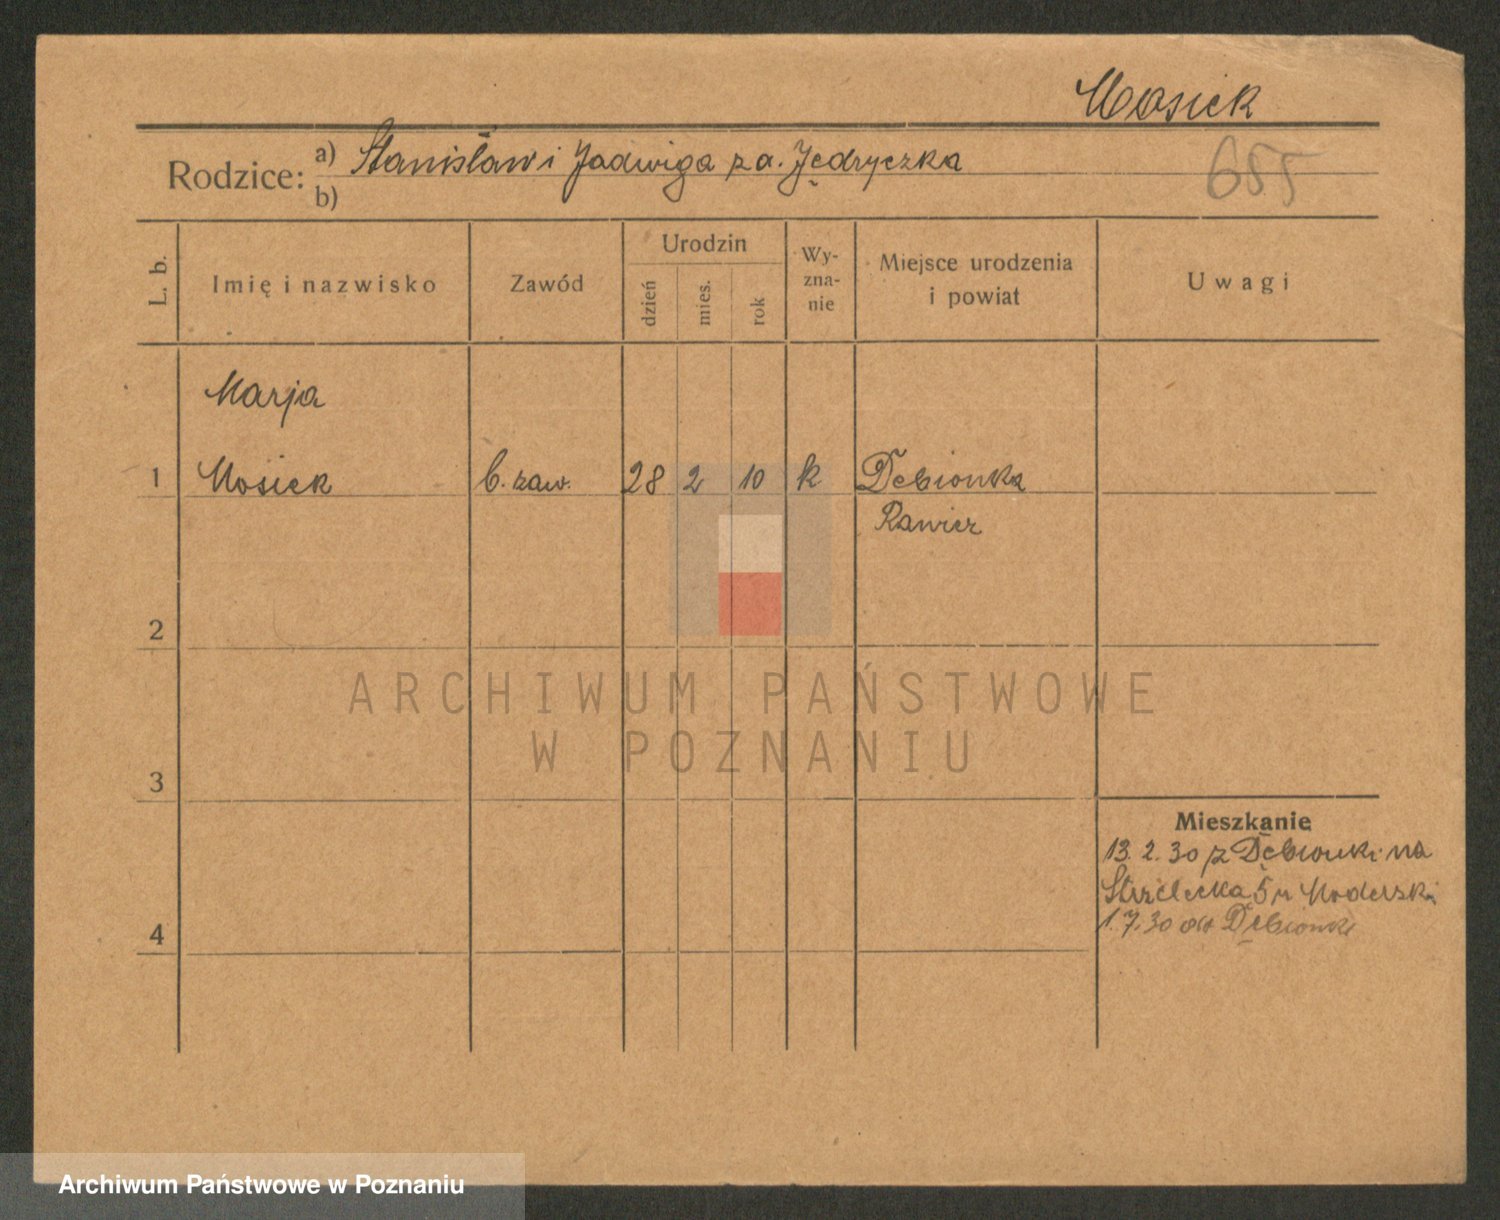 Mosiek
Rodzice: a) Stanisław i Jadwiga za. Jędryczka
b)
655
L. b. Imię i nazwisko Zawód Urodzin dzień mies. rok Wy-zna-nie Miejsce urodzenia i powiat Uwagi
Marja
1 Mosiek b. zaw. 28 2 10 k Dębionka
Rawicz
2
ARCHIWUM PAŃSTWOWE
W POZNANIU
3
Mieszkanie
13. 2. 30 z Dębionki na
Strzelecka 5
1. 7. 30 Dębionk
4
Archiwum Państwowe w Poznaniu